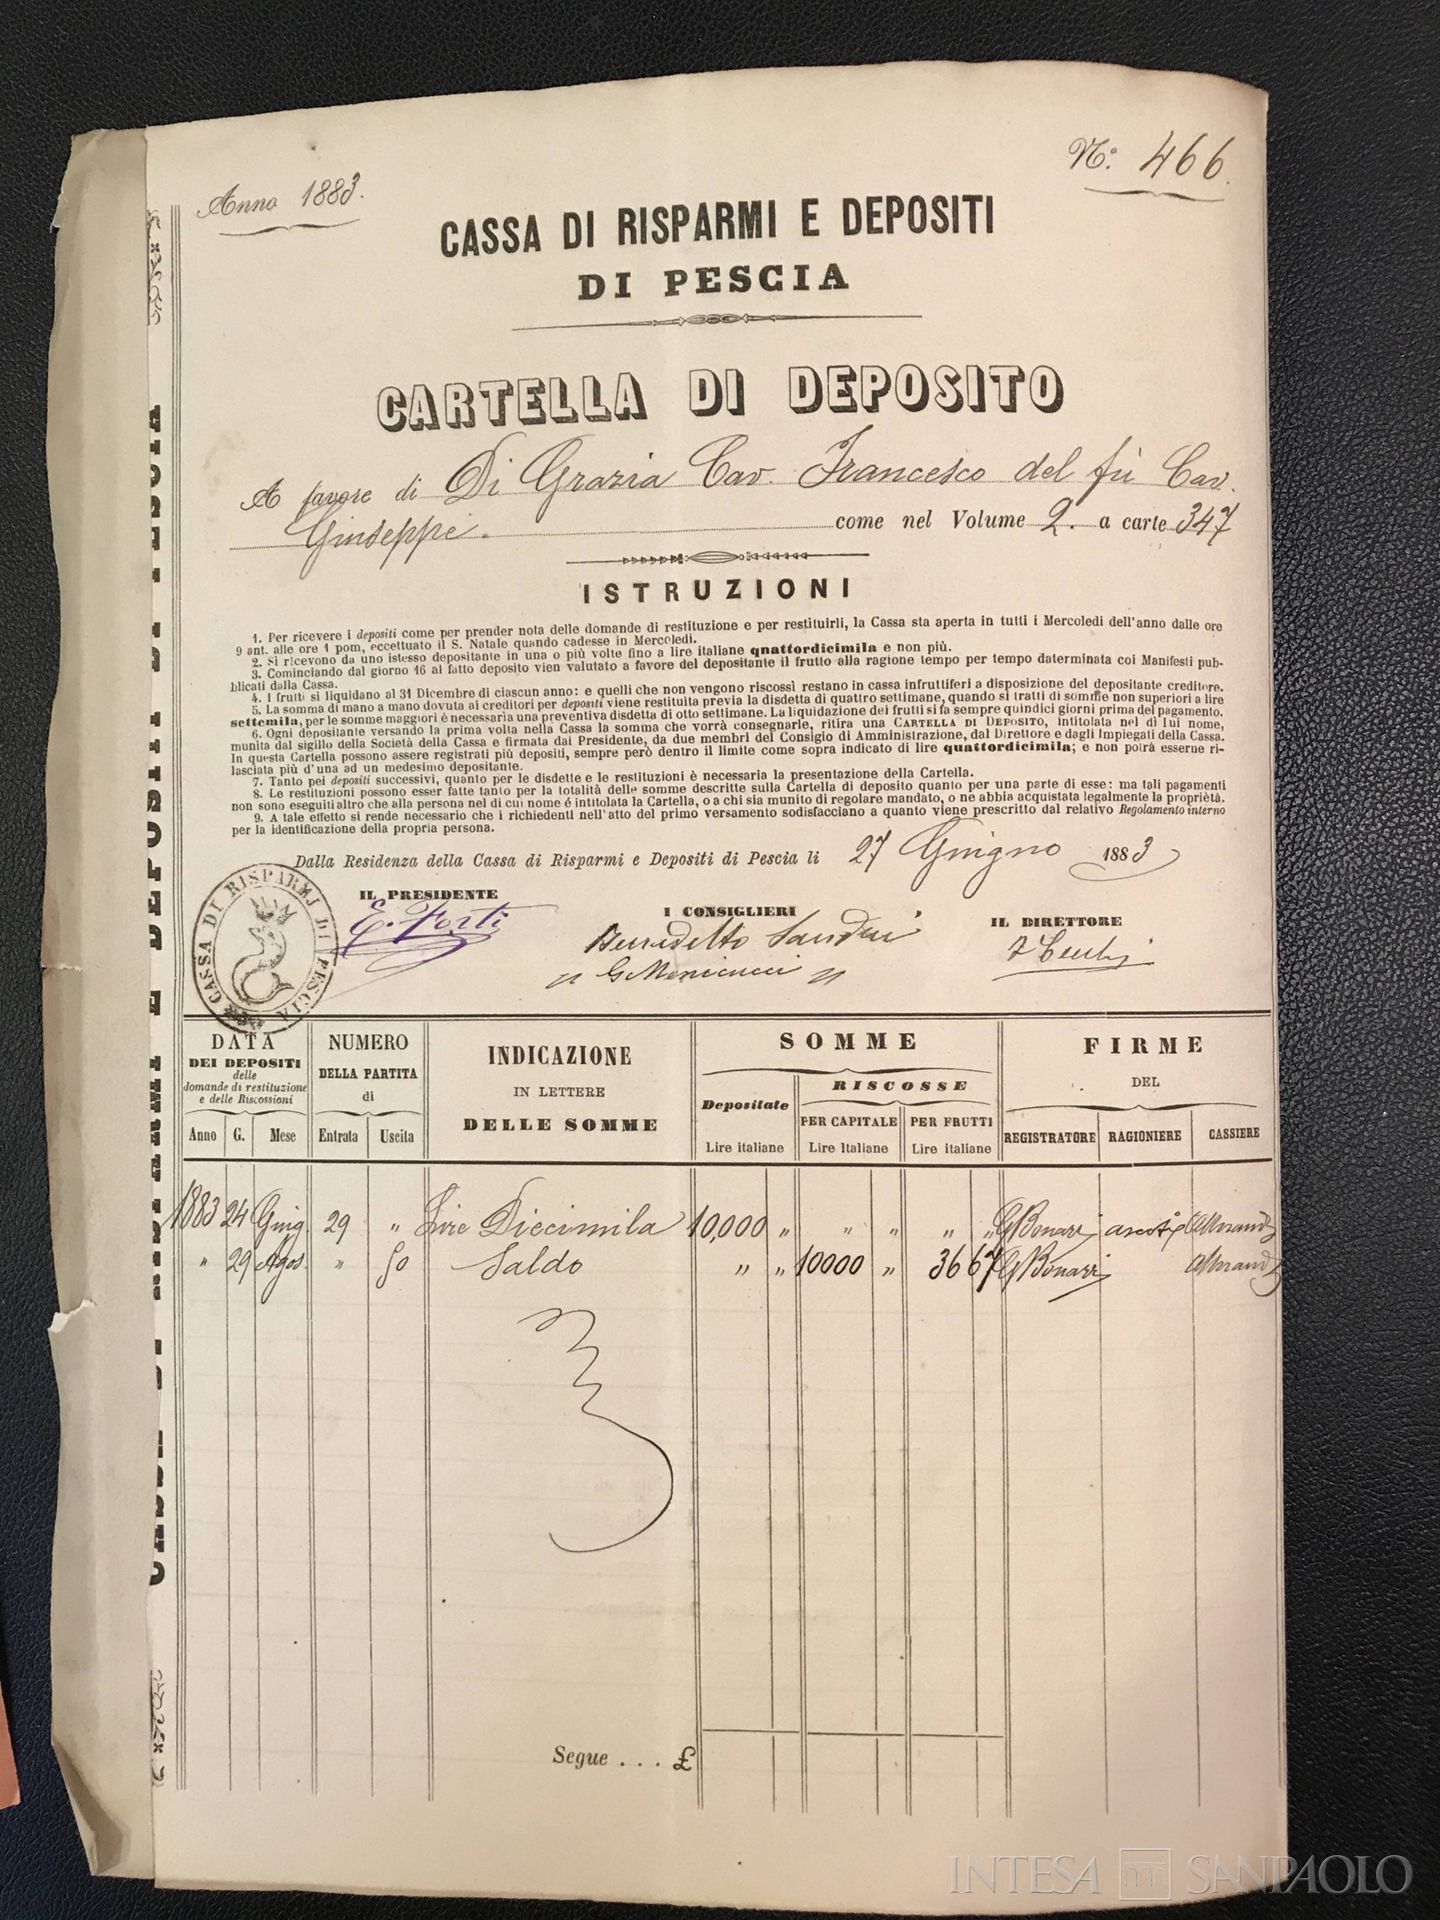 Anno 1883.
Nº. 466.
CASSA DI RISPARMI E DEPOSITI
DI PESCIA
CARTELLA DI DEPOSITO
A favore di Di Grazia Cav. Francesco del fù Cav.
Giuseppe. come nel Volume 2. a carte 347
ISTRUZIONI
1. Per ricevere i depositi come per prender nota delle domande di restituzione e per restituirli, la Cassa sta aperta in tutti i Mercoledì dell'anno dalle ore
9 ant. alle ore 1 pom, eccettuato il S. Natale quando cadesse in Mercoledì.
2. Si ricevono da uno istesso depositante in una o più volte fino a lire italiane qnattordicimila e non più.
3. Cominciando dal giorno 16 al fatto deposito vien valutato a favore del depositante il frutto alla ragione tempo per tempo daterminata coi Manifesti pub-
blicati dalla Cassa.
4. I frutti si liquidano al 31 Dicembre di ciascun anno: e quelli che non vengono riscossi restano in cassa infruttiferi a disposizione del depositante creditore.
5. La somma di mano a mano dovuta ai creditori per depositi viene restituita previa la disdetta di quattro settimane, quando si tratti di somme non superiori a lire
settemila, per le somme maggiori è necessaria una preventiva disdetta di otto settimane. La liquidazione dei frutti si fa sempre quindici giorni prima del pagamento.
6. Ogni depositante versando la prima volta nella Cassa la somma che vorrà consegnarle, ritira una CARTELLA DI DEPOSITO, intitolata nel di lui nome,
munita dal sigillo della Società della Cassa e firmata dai Presidente, da due membri del Consigio di Amministrazione, dal Direttore e dagli Impiegati della Cassa.
In questa Cartella possono essere registrati più depositi, sempre però dentro il limite come sopra indicato di lire quattordicimila; e non potrà esserne ri-
lasciata più d'una ad un medesimo depositante.
7. Tanto pei depositi successivi, quanto per le disdette e le restituzioni è necessaria la presentazione della Cartella.
8. Le restituzioni possono esser fatte tanto per la totalità delle somme descritte sulla Cartella di deposito quanto per una parte di esse: ma tali pagamenti
non sono eseguiti altro che alla persona nel di cui nome é intitolata la Cartella, o a chi sia munito di regolare mandato, o ne abbia acquistata legalmente la proprietà.
9. A tale effetto si rende necessario che i richiedenti nell'atto del primo versamento sodisfacciano a quanto viene prescritto dal relativo Regolamento interno
per la identificazione della propria persona.
Dalla Residenza della Cassa di Risparmi e Depositi di Pescia li 27 Giugno 1883
CASSA DI RISPARMI DI PESCIA
IL PRESIDENTE
E. Forti
I CONSIGLIERI
Benedetto Sandri
G Menicucci
IL DIRETTORE
DATA
DEI DEPOSITI
delle
domande di restituzione
e delle Riscossioni
NUMERO
DELLA PARTITA
di
INDICAZIONE
IN LETTERE
DELLE SOMME
SOMME
FIRME
DEL
Depositate
RISCOSSE
PER CAPITALE PER FRUTTI
Anno G. Mese Entrata Uscita
Lire italiane Lire Italiane Lire italiane
REGISTRATORE RAGIONIERE CASSIERE
1883 24 Giug. 29 " Lire Diecimila 10,000 " " " " " G Bonari
" 29 Agos. " 50 Saldo " " 10000 " 36 67 G Bonari
Segue . . . £
INTESA SANPAOLO